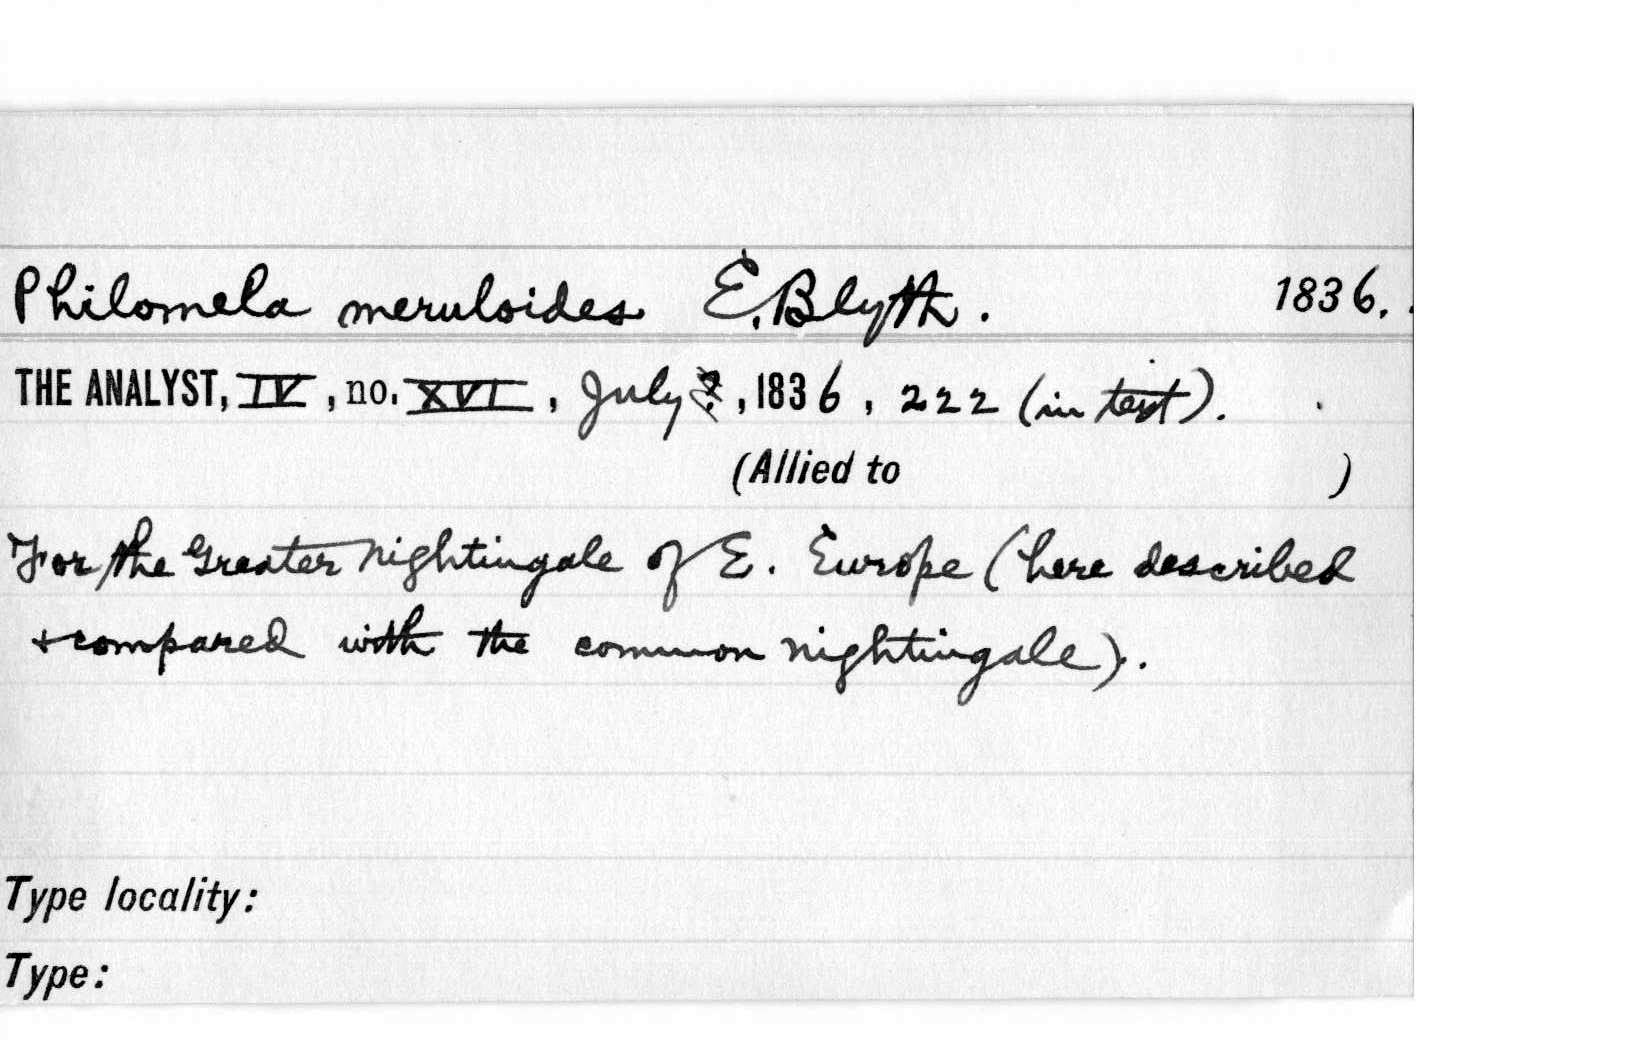 Philomela meruloides E. Blyth. 1836.
THE ANALYST, IV, no. XVI, July ?, 1836, 222 (in text).
(Allied to )
For the Greater Nightingale of E. Europe (here described
+ compared with the common nightingale).
Type locality:
Type: